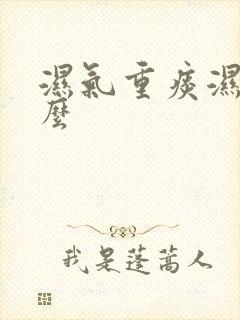 濕氣重痰濕
麼
我是蓬蒿人